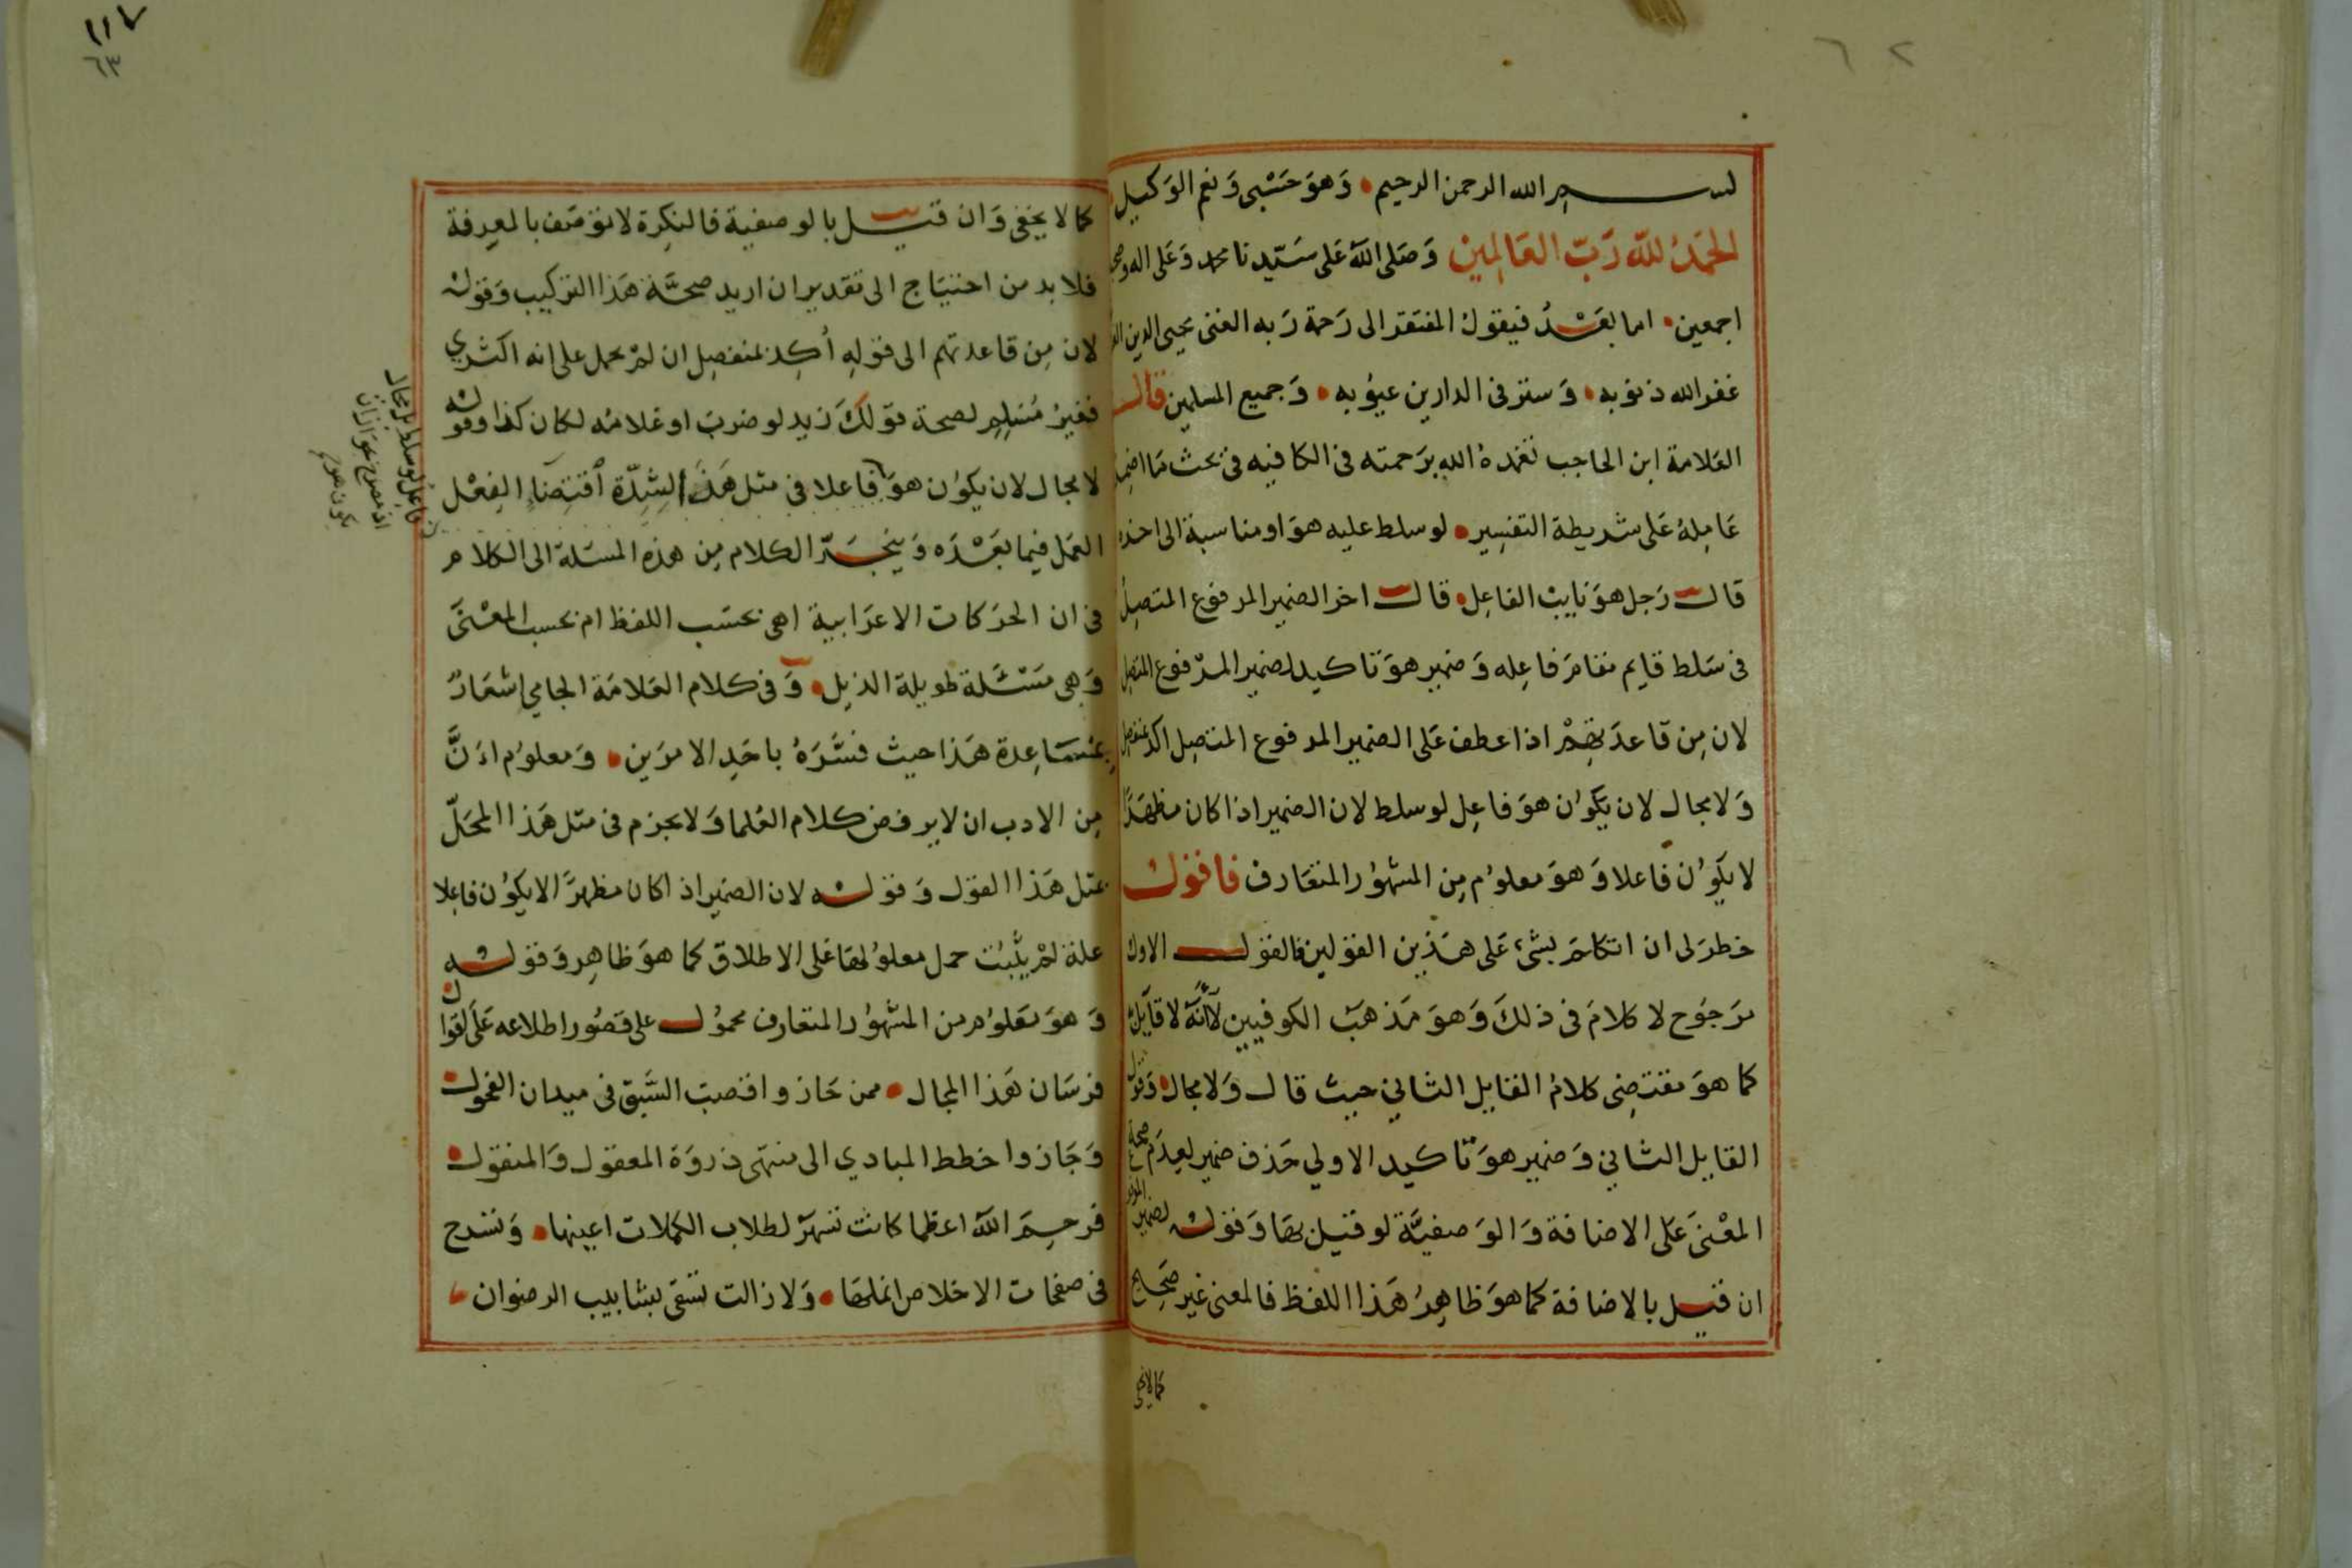 ٦٢
بسم الله الرحمن الرحيم • وَهوَ حَسْبى وَنعم الوَكيل
الحَمدُ للّه رَبّ العَالمِين وَصَلى اللّه عَلى سَيّدنا محمد وَعَلى اله وصحبه
اجمعين • اما بَعْدُ فيقول المفتقر الى رَحمة رَبه الغنى يحيى الدين
غفر الله ذنوبه • وَستر فى الدارين عيوُبه • وَجميع المسلمين قال
العَلامة ابن الحاجب تغمدهُ الله برَحمته فى الكافيه فى بحث مَا اضمِر
عَامِلهُ عَلى شريطة التفسِير • لو سلط عليه هوَ او مناسبة الى اخذه
قال رَجل هوَ نايبُ الفاعِل • قال اخر الضمير المرفوع المتصِل
فى سَلط قايم مقامَ فاعِله وَضمير هوَ تاكيد لضمير المرفوع المتصِل
لان مِن قاعدَتهِمْ اذا عطف عَلى الضمير المرفوع المتصِل اكد بمنفصِل
وَلا مجال لان يَكوُن هوَ فاعِل لو سلط لان الضمير اذا كان مظهَرًا
لا يكَوُن فاعلا وَهوَ معلوُم مِن المشهوُر المتعَارف فاقول
خطرَ لى ان اتكلمَ بشىء عَلى هذَين القولين فالقول الاول
مرَجوُح لا كلامَ فى ذلكَ وَهوَ مَذهَبُ الكوفيين لاَنّهَ لا قايل
كما هوَ مقتضِى كلامُ القايل الثاني حيث قال وَلا مجال • وَقول
القايل الثاني وَضمير هوَ تاكيد الاولي حَذف ضمير لعِدَم صحة
المعْنىَ عَلى الاضافة وَالوَصفيَّة لو قيل بهَا وَقوله لضمير المرفوع
ان قيل بالاضافة كما هوَ ظاهِرُ هَذا اللفظ فالمعنى غير صَحِيح
كما لا يخفى
١١٧
٦٣
كما لا يخفى وَان قيل بالوصفية فالنكِرة لا توصَف بالمعرِفة
فلا بد من احتيَاج الى تقدير ان اريد صحَّة هَذا التركيب وَقوله
لان مِن قاعدتهم الى قولِهِ أكِد بمنفصِل ان لمْ يحمل على انه اكثري
فغيرُ مُسَلم لصحة قوّلكَ زيد لو ضرِبَ او غلامُه لكان كذا وقوله
لا مجال لان يكوُن هوَ فاعلا فى مثل هَذَا لِشِدّة اقتِضآءِ الفِعْل
العَمَل فيما بَعْدَه وَينجَرّ الكلام مِن هذه المسَلة الى الكلام
فى ان الحرَكات الاعرَابية اهى بحسَب اللفظ ام بحسب المعْنىَ
وَهى مَسْئَلة طويلة الذيل • وَفى كلام العَلامَة الجامي اشعَارٌ
بِمُسَاعِدة هَذا حيث فسَّرَهُ باحَدِ الامرَين • وَمعلوُم اَنَّ
مِن الادب ان لا يرفض كلام العُلما وَلا يجزم فى مثل هَذا المحَلّ
بمثل هَذا القول وَقوله لان الضمير اذا كان مظهرًا لا يكوُن فاعلا
علة لمْ يَثبُت حمل معلوُلهَا عَلى الاطلاق كما هوَ ظاهِر وَقوله
وَهوَ مَعلوُم من المشهوُر المتعارف محموُل على قصُور اطلاعه عَلَى اقوال
فرسَان هَذا المجال • ممن حَازوا قصبَ السَّبق فى ميدان الفحول •
وَجَازوا خطط المبادي الى منتهى ذروَة المعقول وَالمنقول •
فرحِمَ اللّه اعظما كانت تسَهَرْ لطلاب الكمالات اعينها • وَتسَدح
فى صفحات الاخلاص انملهَا • وَلا زالت تسَقى بشابيب الرضوان
فاعل لو سلط لا مجال
اذ مصرح جواز ان
يكون هو